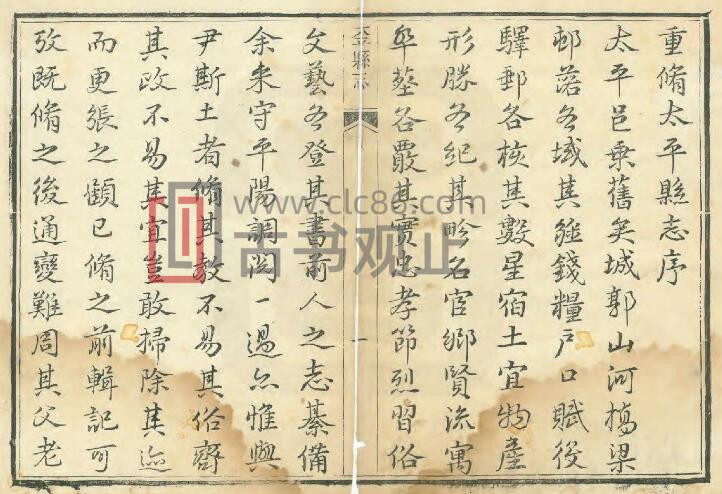 重脩太平縣志序
太平邑乗舊矣城郭山河橋梁
邨落各域其錢糧戶口賦役
驛郵各核其數星宿土宜物產
形勝各紀其名宦鄉賢流寓
塟各覈其實忠孝節烈習俗
平縣志
一
文藝各登其書前人之志綦備
余来守平陽調閱一過亦惟與
尹斯土者脩其教不易其俗齊
其政不易其宜豈敢掃除其迹
而更張之顧已脩之前輯記可
攷既脩之後通變難周其父老
www.clc86.com
古书观止